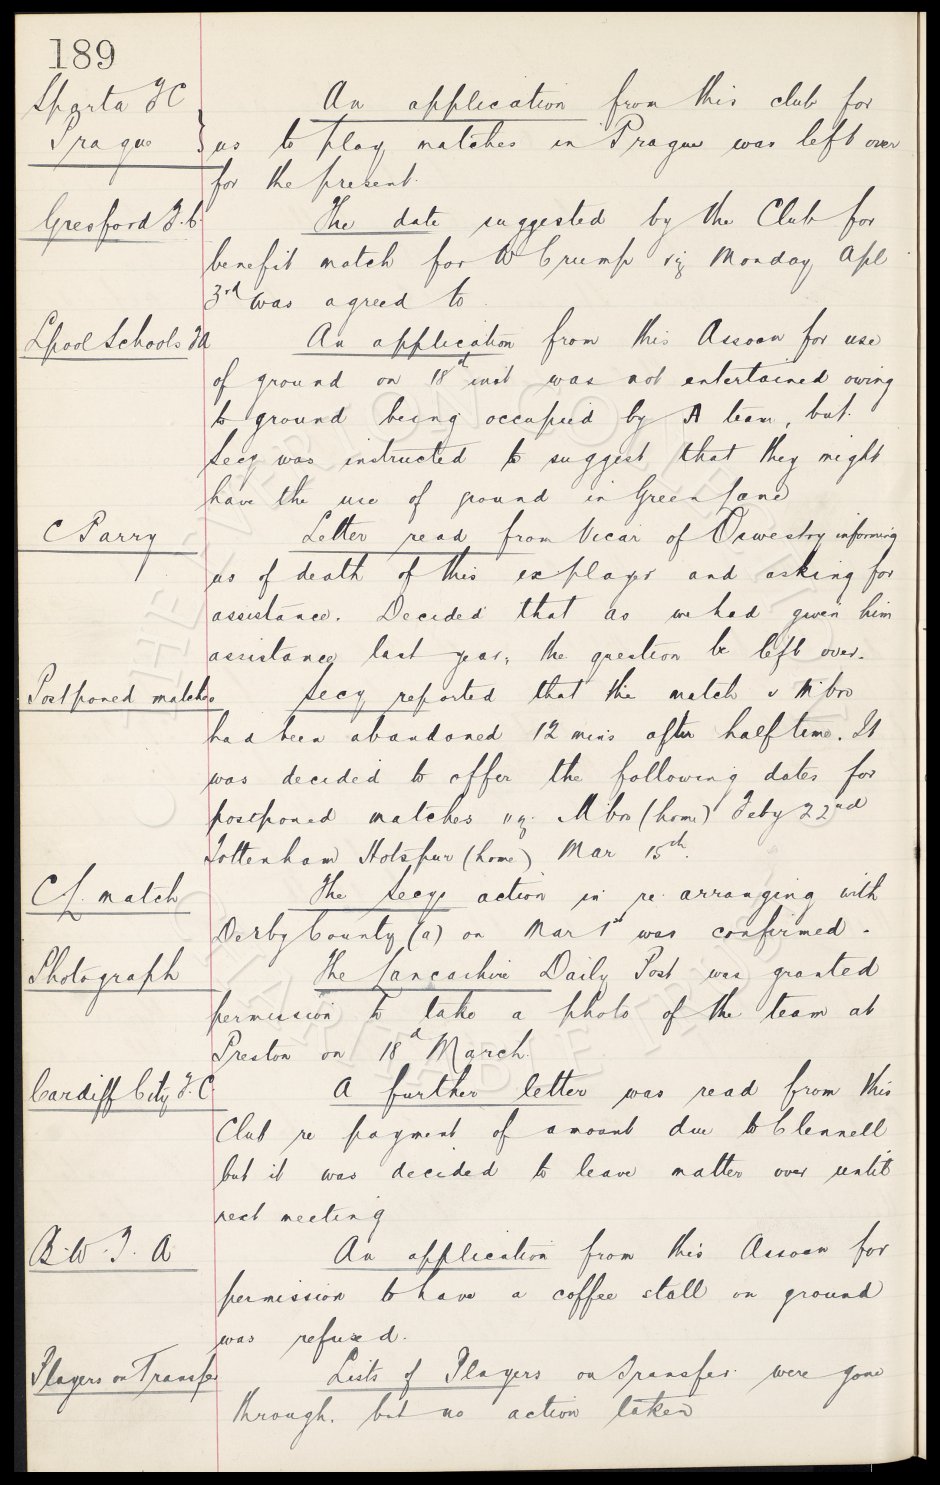 189
Sparta F C An application from this club for
Prague } us to play matches in Prague was left over
for the present.
Gresford F.C. The date suggested by the Club for
benefit match for W Crump viz Monday Apl
3rd was agreed to
Lpool Schools FA An application from this Assocn for use
of ground on 18th inst was not entertained owing
to ground being occupied by A team, but
Secy was instructed to suggest that they might
have the use of ground in Green Lane
C Parry Letter read from Vicar of Oswestry informing
us of death of this explayer and asking for
assistance. Decided that as we had given him
assistance last year, the question be left over.
Postponed matches Secy reported that the match v M'bro
had been abandoned 12 mins after half time. It
was decided to offer the following dates for
postponed matches viz. M'bro (home) Feby 22nd
Tottenham Hotspur (home) Mar 15th.
C L. match The Secys action in re arranging with
Derby County (a) on Mar 1st was confirmed.
Photograph The Lancashire Daily Post was granted
permission to take a photo of the team at
Preston on 18th March.
Cardiff City F.C. A further letter was read from this
Club re payment of amount due to Clennell
but it was decided to leave matter over until
next meeting
B.W.F.A An application from this Assocn for
permission to have a coffee stall on ground
was refused.
Players on Transfer Lists of Players on Transfer were gone
through, but no action taken
THE EVERTON COLLECTION
CHARITABLE TRUST